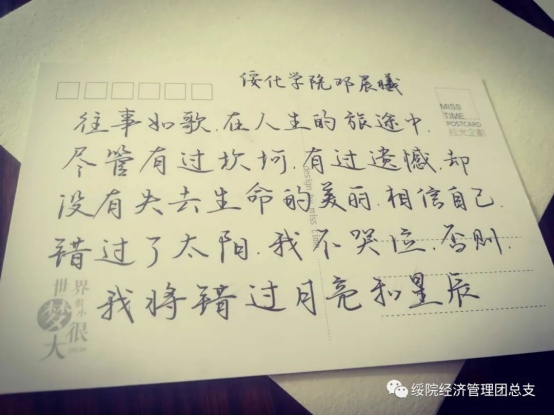 绥化学院邓晨曦
MISS
TIME
POSTCARD
往事如歌.在人生的旅途中.
尽管有过坎坷.有过遗憾.却
没有失去生命的美丽.相信自己.
错过了太阳.我不哭泣.否则.
我将错过月亮和星辰
世界
梦
很
大
绥院经济管理团总支